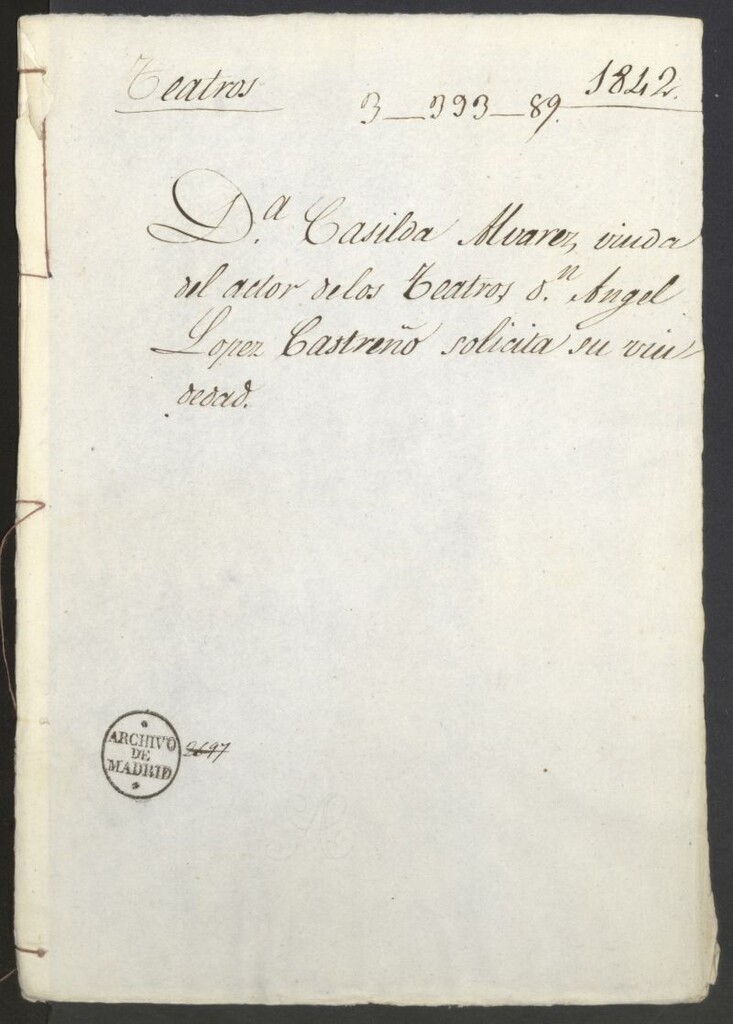 Teatros
1842.
3_393_89.
D.ª Casilda Alvarez, viuda
del actor de los Teatros d.n Angel
Lopez Castreño solicita su viu
dedad.
ARCHIVO
DE
MADRID
2697